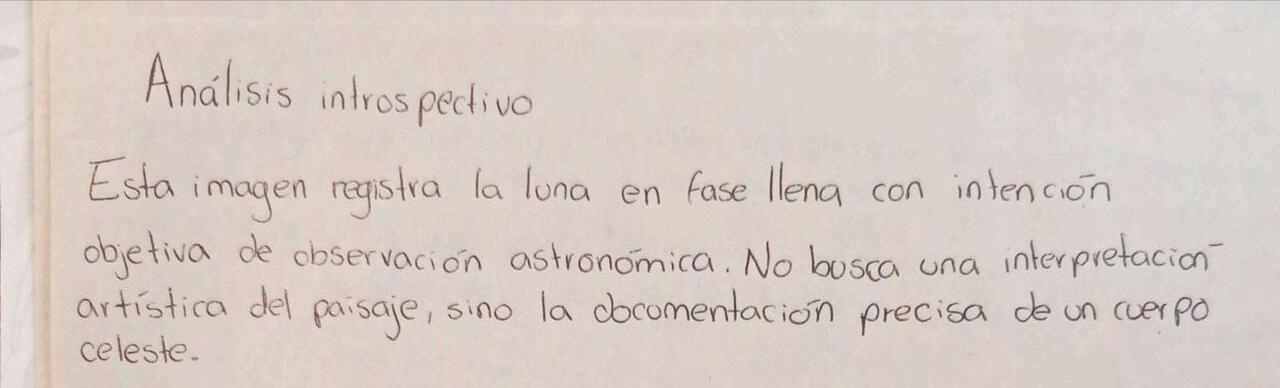 Análisis introspectivo
Esta imagen registra la luna en fase llena con intención
objetiva de observación astronómica. No busca una interpretación
artística del paisaje, sino la documentación precisa de un cuerpo
celeste.